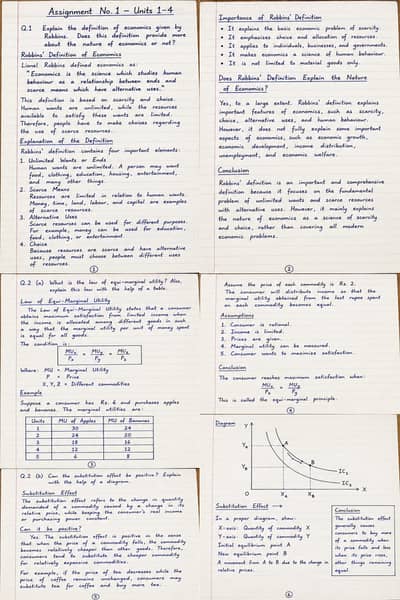 Assignment No. 1 – Units 1-4
Q.1 Explain the definition of economics given by
Robbins. Does this definition provide more
about the nature of economics or not?
Robbins' Definition of Economics
Lionel Robbins defined economics as:
"Economics is the science which studies human
behaviour as a relationship between ends and
scarce means which have alternative uses."
This definition is based on scarcity and choice.
Human wants are unlimited, while the resources
available to satisfy these wants are limited.
Therefore, people have to make choices regarding
the use of scarce resources.
Explanation of the Definition
Robbins' definition contains four important elements:
1. Unlimited Wants or Ends
Human wants are unlimited. A person may want
food, clothing, education, housing, entertainment,
and many other things.
2. Scarce Means
Resources are limited in relation to human wants.
Money, time, land, labour, and capital are examples
of scarce resources.
3. Alternative Uses
Scarce resources can be used for different purposes.
For example, money can be used for education,
food, clothing, or entertainment.
4. Choice
Because resources are scarce and have alternative
uses, people must choose between different uses
of resources.
1
Importance of Robbins' Definition
• It explains the basic economic problem of scarcity.
• It emphasises choice and allocation of resources.
• It applies to individuals, businesses, and governments.
• It makes economics a science of human behaviour.
• It is not limited to material goods only.
Does Robbins' Definition Explain the Nature
of Economics?
Yes, to a large extent. Robbins' definition explains
important features of economics, such as scarcity,
choice, alternative uses, and human behaviour.
However, it does not fully explain some important
aspects of economics, such as economic growth,
economic development, income distribution,
unemployment, and economic welfare.
Conclusion
Robbins' definition is an important and comprehensive
definition because it focuses on the fundamental
problem of unlimited wants and scarce resources
with alternative uses. However, it mainly explains
the nature of economics as a science of scarcity
and choice, rather than covering all modern
economic problems.
2
Q.2 (a) What is the law of equi-marginal utility? Also,
explain this law with the help of a table.
Law of Equi-Marginal Utility
The Law of Equi-Marginal Utility states that a consumer
obtains maximum satisfaction from limited income when
the income is allocated among different goods in such
a way that the marginal utility per unit of money spent
is equal for all goods.
The condition is:
MUx/Px = MUy/Py = MUz/Pz
Where: MU = Marginal Utility
P = Price
X, Y, Z = Different commodities
Example
Suppose a consumer has Rs. 6 and purchases apples
and bananas. The marginal utilities are:
Units MU of Apples MU of Bananas
1 30 24
2 24 20
3 18 16
4 12 12
5 6 8
3
Assume the price of each commodity is Rs. 2.
The consumer will distribute income so that the
marginal utility obtained from the last rupee spent
on each commodity becomes equal.
Assumptions
1. Consumer is rational.
2. Income is limited.
3. Prices are given.
4. Marginal utility can be measured.
5. Consumer wants to maximize satisfaction.
Conclusion
The consumer reaches maximum satisfaction when:
MUx/Px = MUy/Py
This is called the equi-marginal principle.
4
Q.2 (b) Can the substitution effect be positive? Explain
with the help of a diagram.
Substitution Effect
The substitution effect refers to the change in quantity
demanded of a commodity caused by a change in its
relative price, while keeping the consumer's real income
or purchasing power constant.
Can it be positive?
Yes. The substitution effect is positive in the sense
that when the price of a commodity falls, the commodity
becomes relatively cheaper than other goods. Therefore,
consumers tend to substitute the cheaper commodity
for relatively expensive commodities.
For example, if the price of tea decreases while the
price of coffee remains unchanged, consumers may
substitute tea for coffee and buy more tea.
5
Diagram
Y
A
B
IC₁
X
O
Substitution Effect →
In a proper diagram, show:
X-axis: Quantity of commodity X
Y-axis: Quantity of commodity Y
Initial equilibrium point A
New equilibrium point B
A movement from A to B due to the change in
relative prices.
Conclusion
The substitution
effect generally
causes consumers
to buy more
of a commodity when
its price falls and less
when its price rises,
other things remaining
equal.
6